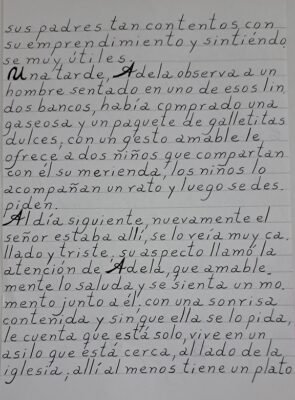 sus padres tan contentos con
su emprendimiento y sintiéndo
se muy útiles.
Una tarde, Adela observa a un
hombre sentado en uno de esos lin
dos bancos, había comprado una
gaseosa y un paquete de galletitas
dulces, con un gesto amable le
ofrece a dos niños que compartan
con él su merienda, los niños lo
acompañan un rato y luego se des.
piden.
Al día siguiente, nuevamente el
señor estaba allí, se lo veía muy ca.
llado y triste, su aspecto llamó la
atención de Adela, que amable.
mente lo saluda y se sienta un mo.
mento junto a él, con una sonrisa
contenida y sin que ella se lo pida,
le cuenta que está solo, vive en un
asilo que está cerca, al lado de la
iglesia, allí al menos tiene un plato